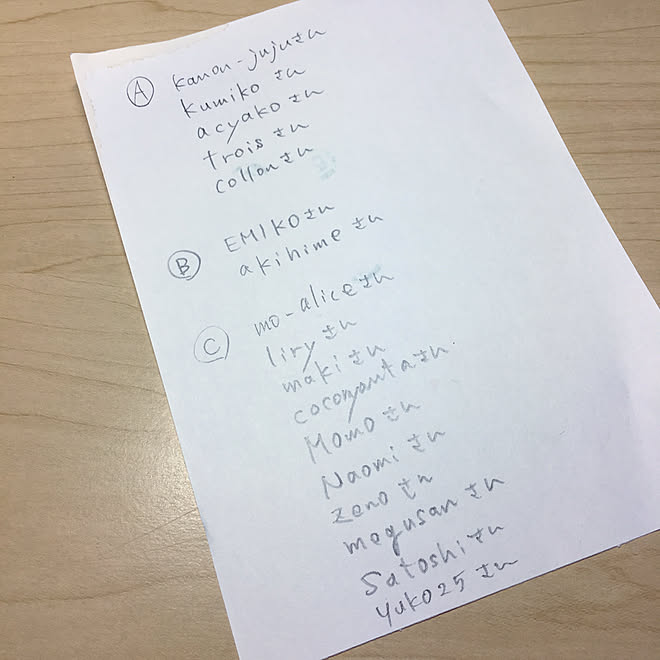 Ⓐ kanon-jujuさん
kumikoさん
acyakoさん
troisさん
collonさん
Ⓑ EMIKOさん
akihimeさん
Ⓒ mo-aliceさん
liryさん
makiさん
coconyantaさん
Momoさん
Naomiさん
zenoさん
megusanさん
Satoshiさん
yuko25さん